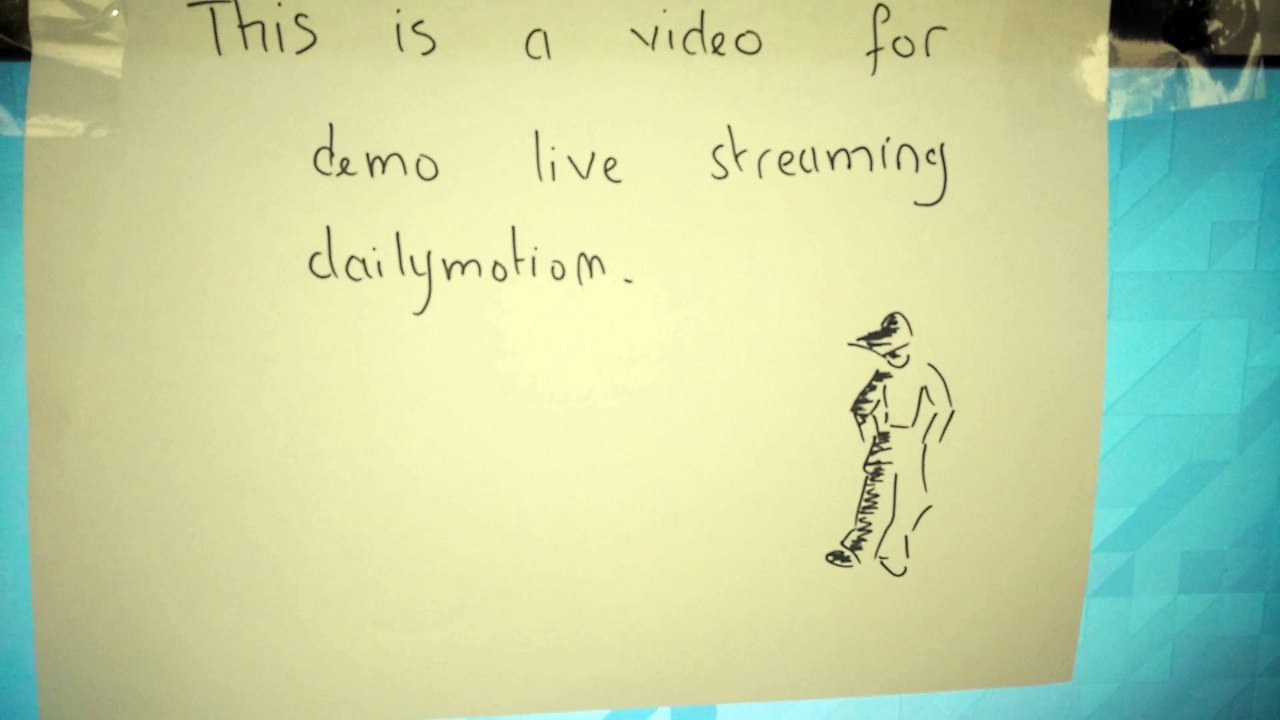 This is a video for
demo live streaming
dailymotion.